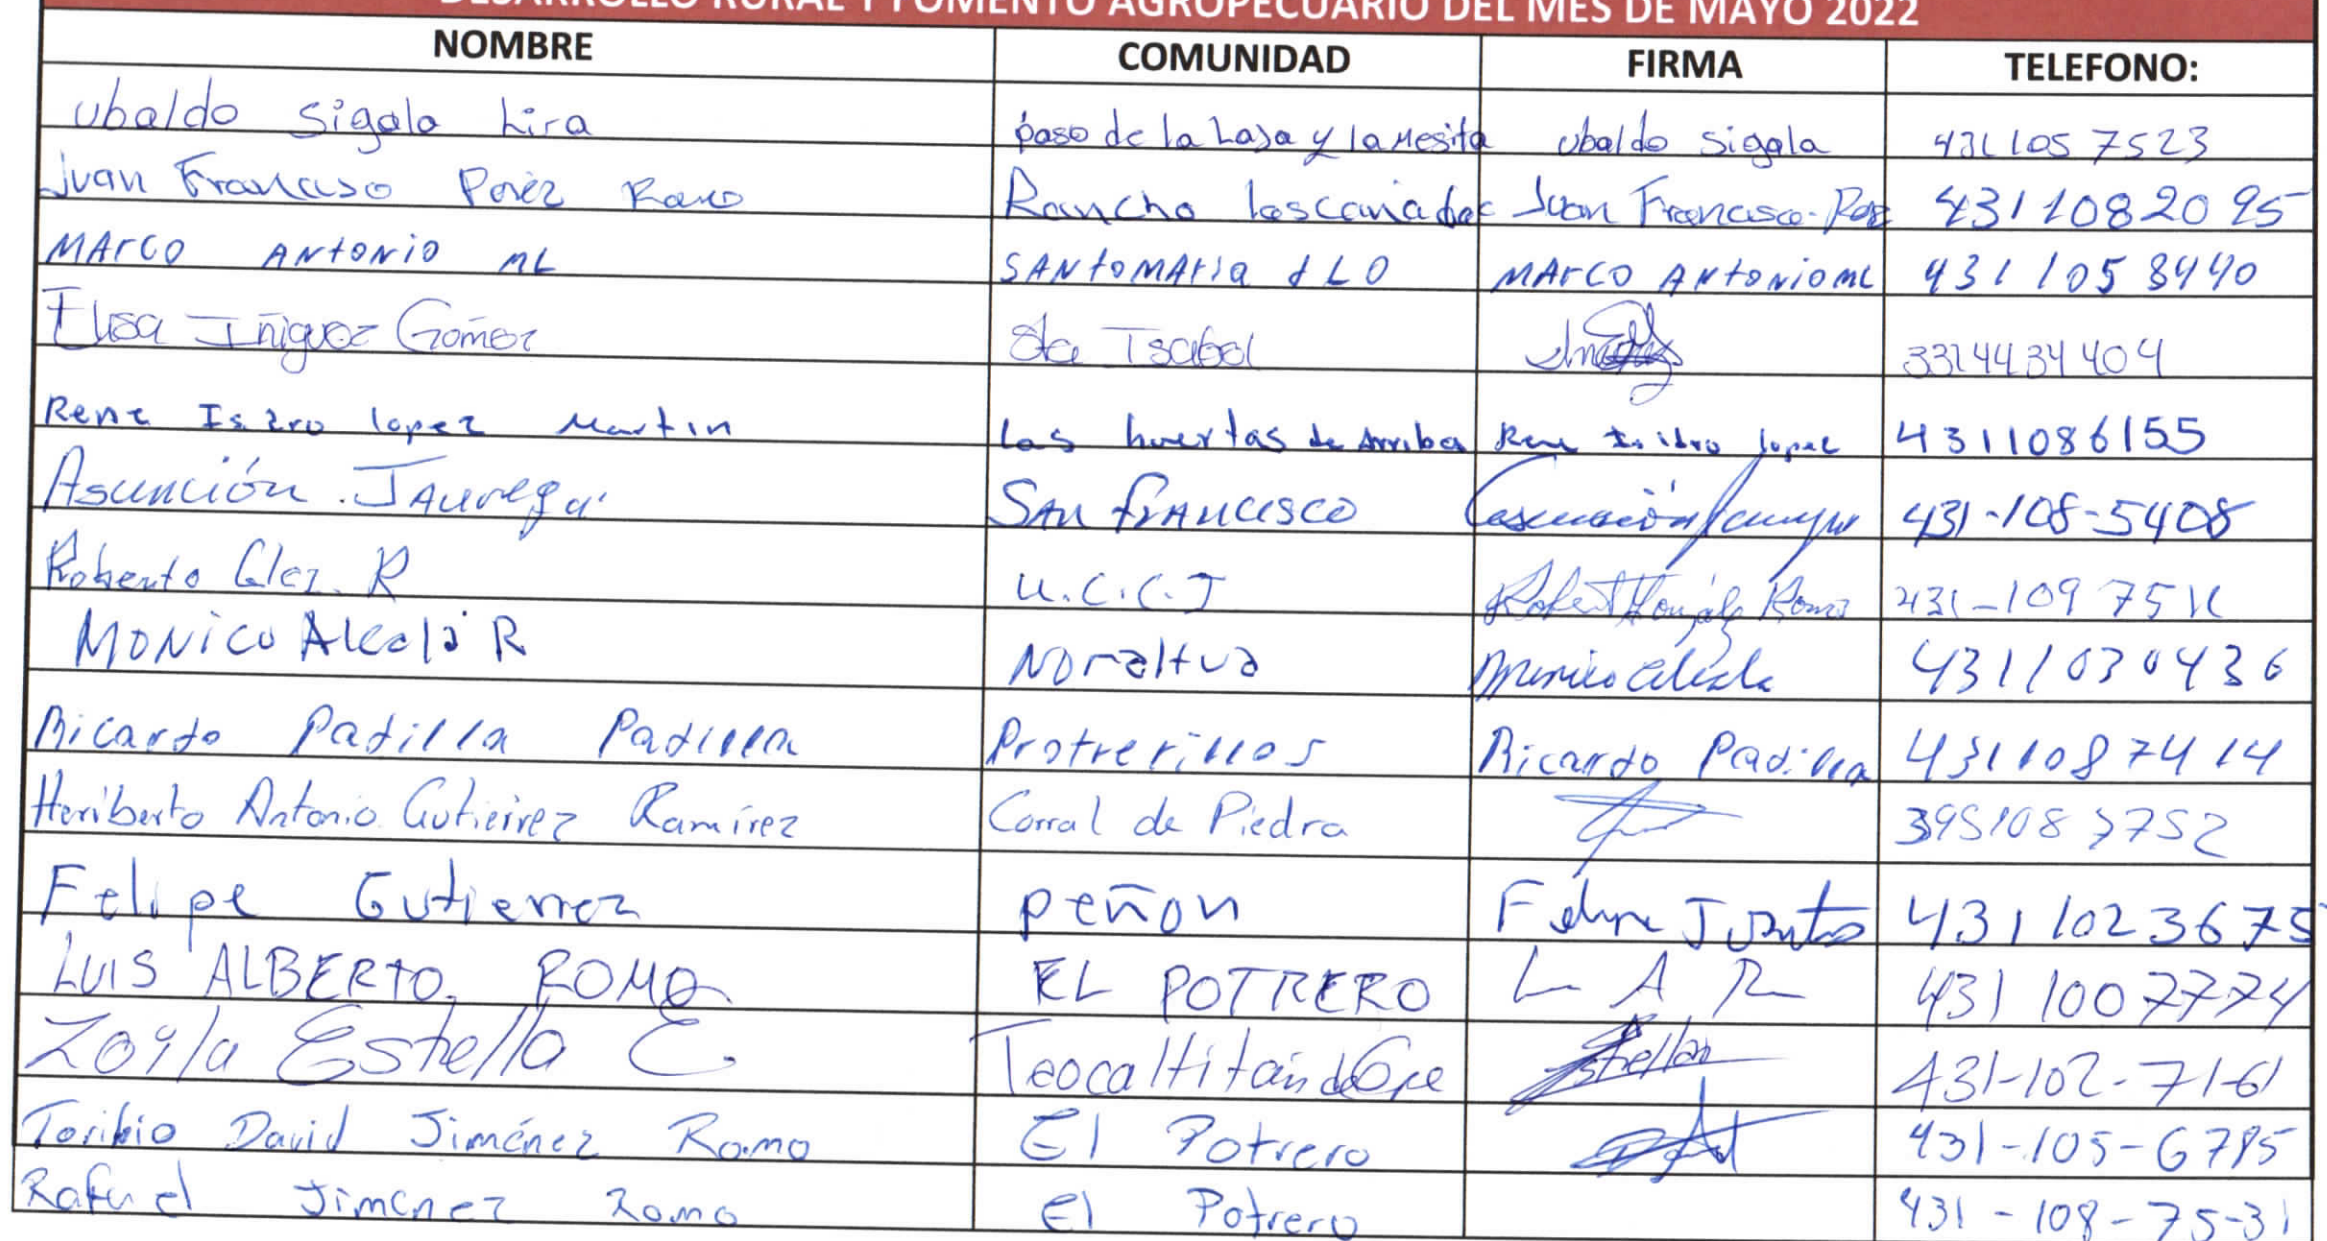 DESARROLLO RURAL Y FOMENTO AGROPECUARIO DEL MES DE MAYO 2022
NOMBRE COMUNIDAD FIRMA TELEFONO:
Ubaldo Sigala Lira paso de la Laja y la Mesita Ubaldo Sigala 431 105 7523
Juan Francisso Perez Romo Rancho las cañadas Juan Francisco 431 108 20 95
MArco ANtoNio ML SANtOMAria d L O MArco ANtoNio ML 431 105 8440
Elisa Iñiguez Gomez Sta Isabel 3314434404
Rene Isidro lopez Martin las huertas de Arriba Rene Isidro lopez 4311086155
Asunción Jauregui San Francisco Asunción 431-108-5408
Roberto Glez. R U.C.C.J Robert González Romo 431-109 75
MONico Alcalá R Noraltua Monico Alcala 4311030436
Ricardo Padilla Padilla Protrerillos Ricardo Padilla 4311087414
Heriberto Antonio Gutierrez Ramírez Corral de Piedra 395108 3752
Felipe Gutierrez peñon Felipe 431 1023675
LUIS ALBERTO. ROMO EL POTRERO L A R 431 1007774
Zoyla Estella E. Teocaltitán de Gpe Estella 431-102-71-61
Toribio David Jiménez Romo El Potrero 431-105-6785
Rafael Jimenez Romo El Potrero 431-108-75-31